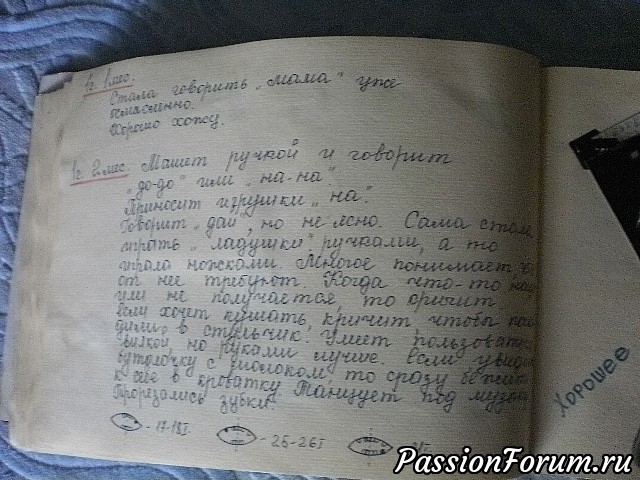 1г. 1мес.
Стала говорить „мама" уже
осмысленно.
Хорошо хожу.
1г. 2мес. Машет ручкой и говорит
„до-до" или „на-на".
Приносит игрушки „на".
Говорит „дай", но не ясно. Сама стала
играть „ладушки" ручками, а то
играла ножками. Многое понимает
от нее требуют. Когда что-то
или не получается, то
если хочет кушать, кричит, чтобы
в стульчик. Умеет
вилкой, но руками лучше. Если
бутылочку с молоком, то сразу
к себе в кроватку. Танцует под
Прорезались зубки.
- 17-18I - 25-26I
Хорошее
PassionForum.ru